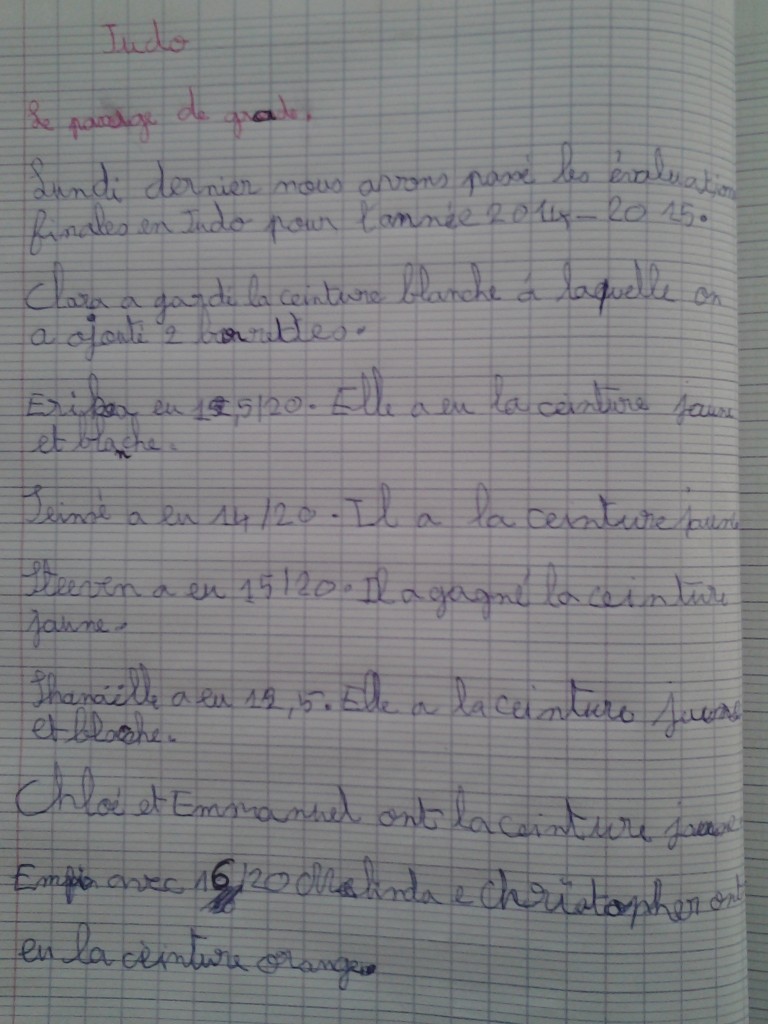 Judo
Le passage de grade.
Lundi dernier nous avons passé les évaluation
finales en Judo pour l'année 2014-2015.
Clara a gardé la ceinture blanche à laquelle on
a ajouté 2 barrettes.
Erika eu 12,5/20. Elle a eu la ceinture jaune
et blanche.
Jeimé a eu 14/20. Il a la ceinture jaune
Steeven a eu 15/20. Il a gagné la ceinture
jaune.
Shanaëlle a eu 12,5. Elle a la ceinture jaune
et blanche.
Chloé et Emmanuel ont la ceinture jaune
Enfin avec 16/20 Melinda e Christopher ont
eu la ceinture orange.